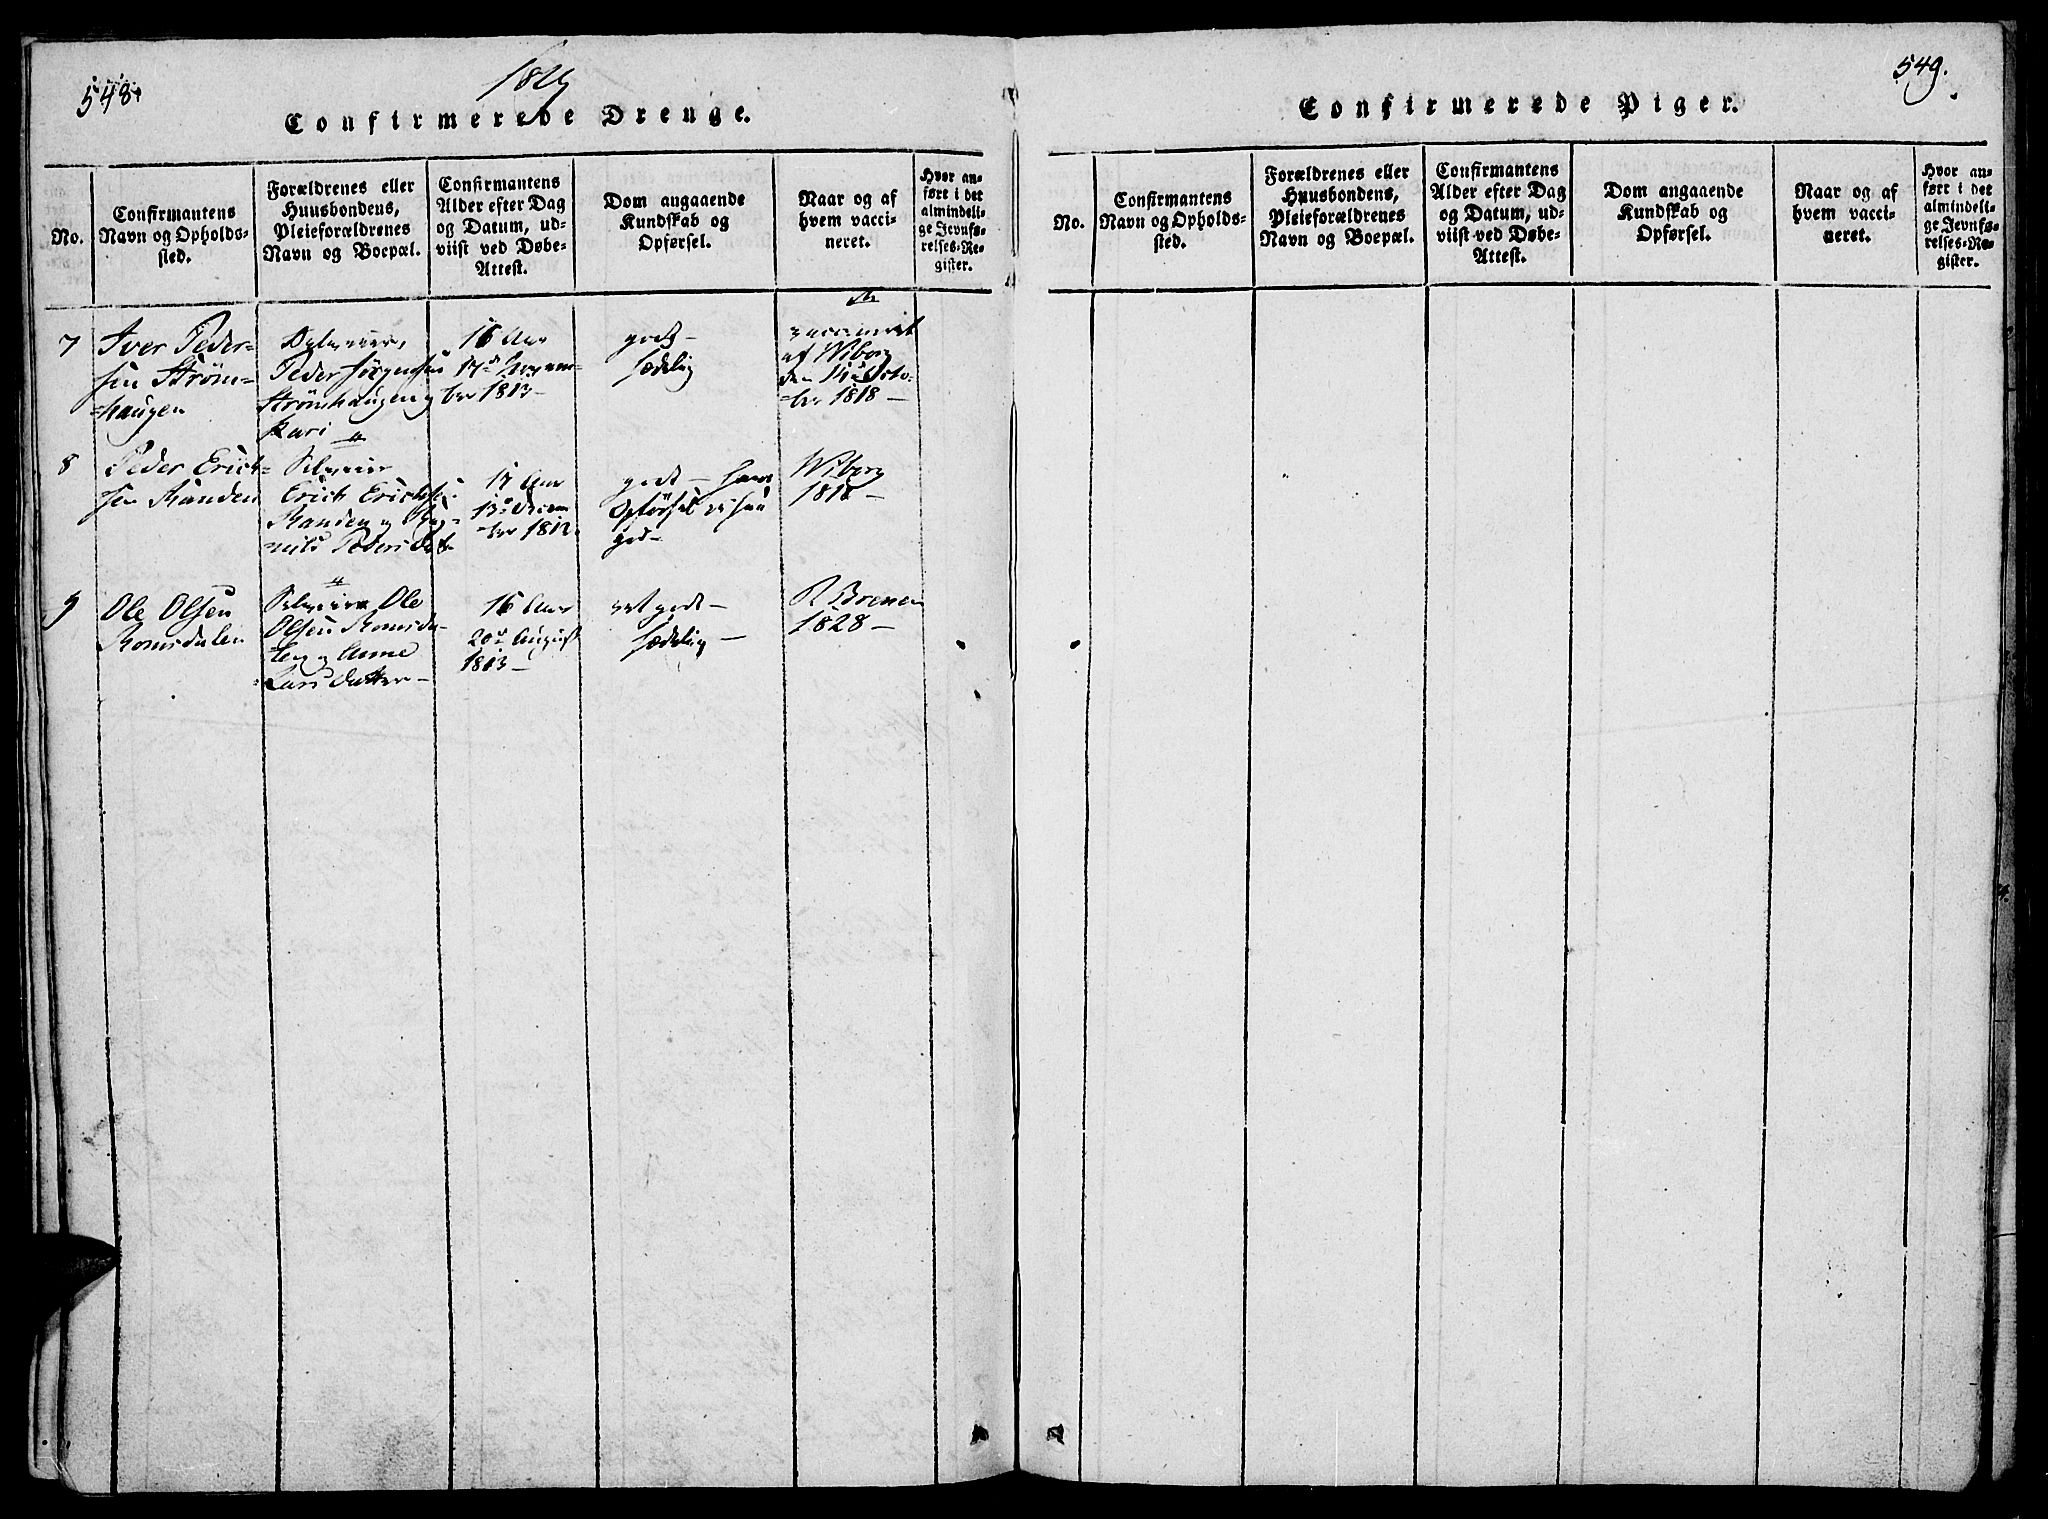 548.
1829
Confirmerede Drenge.
No.
Confirmantens
Navn og Opholds-
sted.
Forældrenes eller
Huusbondens,
Pleieforældrenes
Navn og Boepæl.
Confirmantens
Alder efter Dag
og Datum, ud-
viist ved Døbe-
Attest.
Dom angaaende
Kundskab og
Opførsel.
Naar og af
hvem vacci-
neret.
Hvor an-
ført i det
almindeli-
ge Jevnfø-
relses-Re-
gister.
7
Iver Peder-
sen Strøm-
=haugen
Peder Jörgensen
Strømhaugen og
Kari
16 Aar
17de Novem-
ber 1813-
godt-
sædelig
vaccineret
af Wiborg
den 14de Octo-
=ber 1818-
8
Peder Erich-
sen Randen
Selveier
Erich Erichsen
Randen og Rag-
nild Peders Dat
17 Aar
13de Decem
=ber 1812.
godt- hans
Opførsel
god-
Wiborg
1818-
9
Ole Olsen
Romsdalen
Selveier Ole
Olsen Romsda-
len og Anne
Lars Datter-
16 Aar
20de August
1813-
ret godt-
sædelig-
R Brenen
1828-
549.
Confirmerede Piger.
No.
Confirmantens
Navn og Opholds-
sted.
Forældrenes eller
Huusbondens,
Pleieforældrenes
Navn og Boepæl.
Confirmantens
Alder efter Dag
og Datum, ud-
viist ved Døbe-
Attest.
Dom angaaende
Kundskab og
Opførsel.
Naar og af
hvem vacci-
neret.
Hvor an-
ført i det
almindeli-
ge Jevnfø-
relses-Re-
gister.